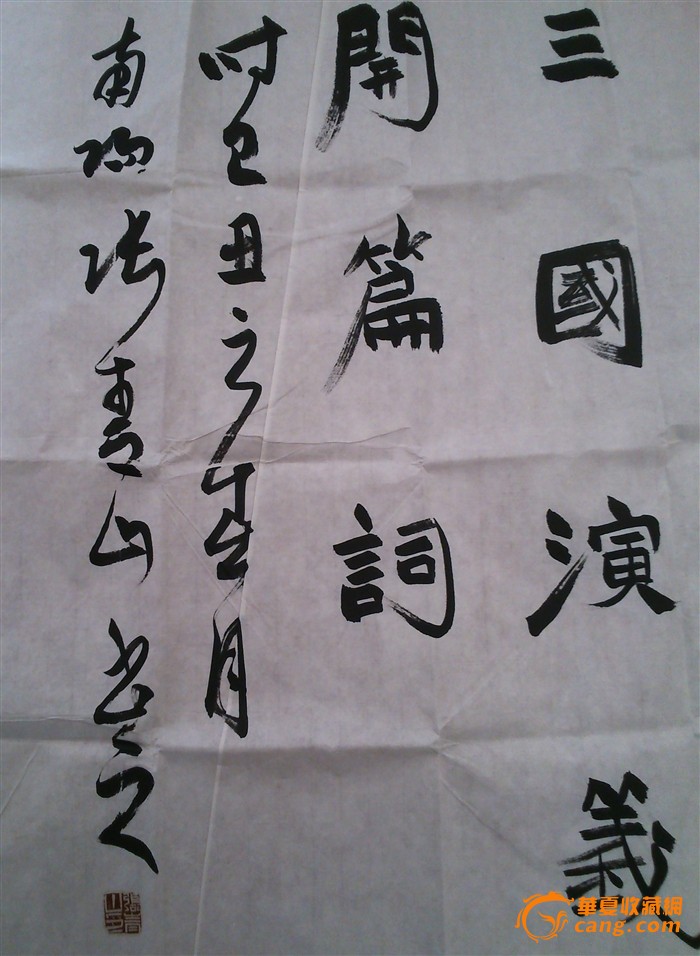 三國演義
開篇詞
时己丑之月
南阳张青山书
華夏收藏網
cang.com